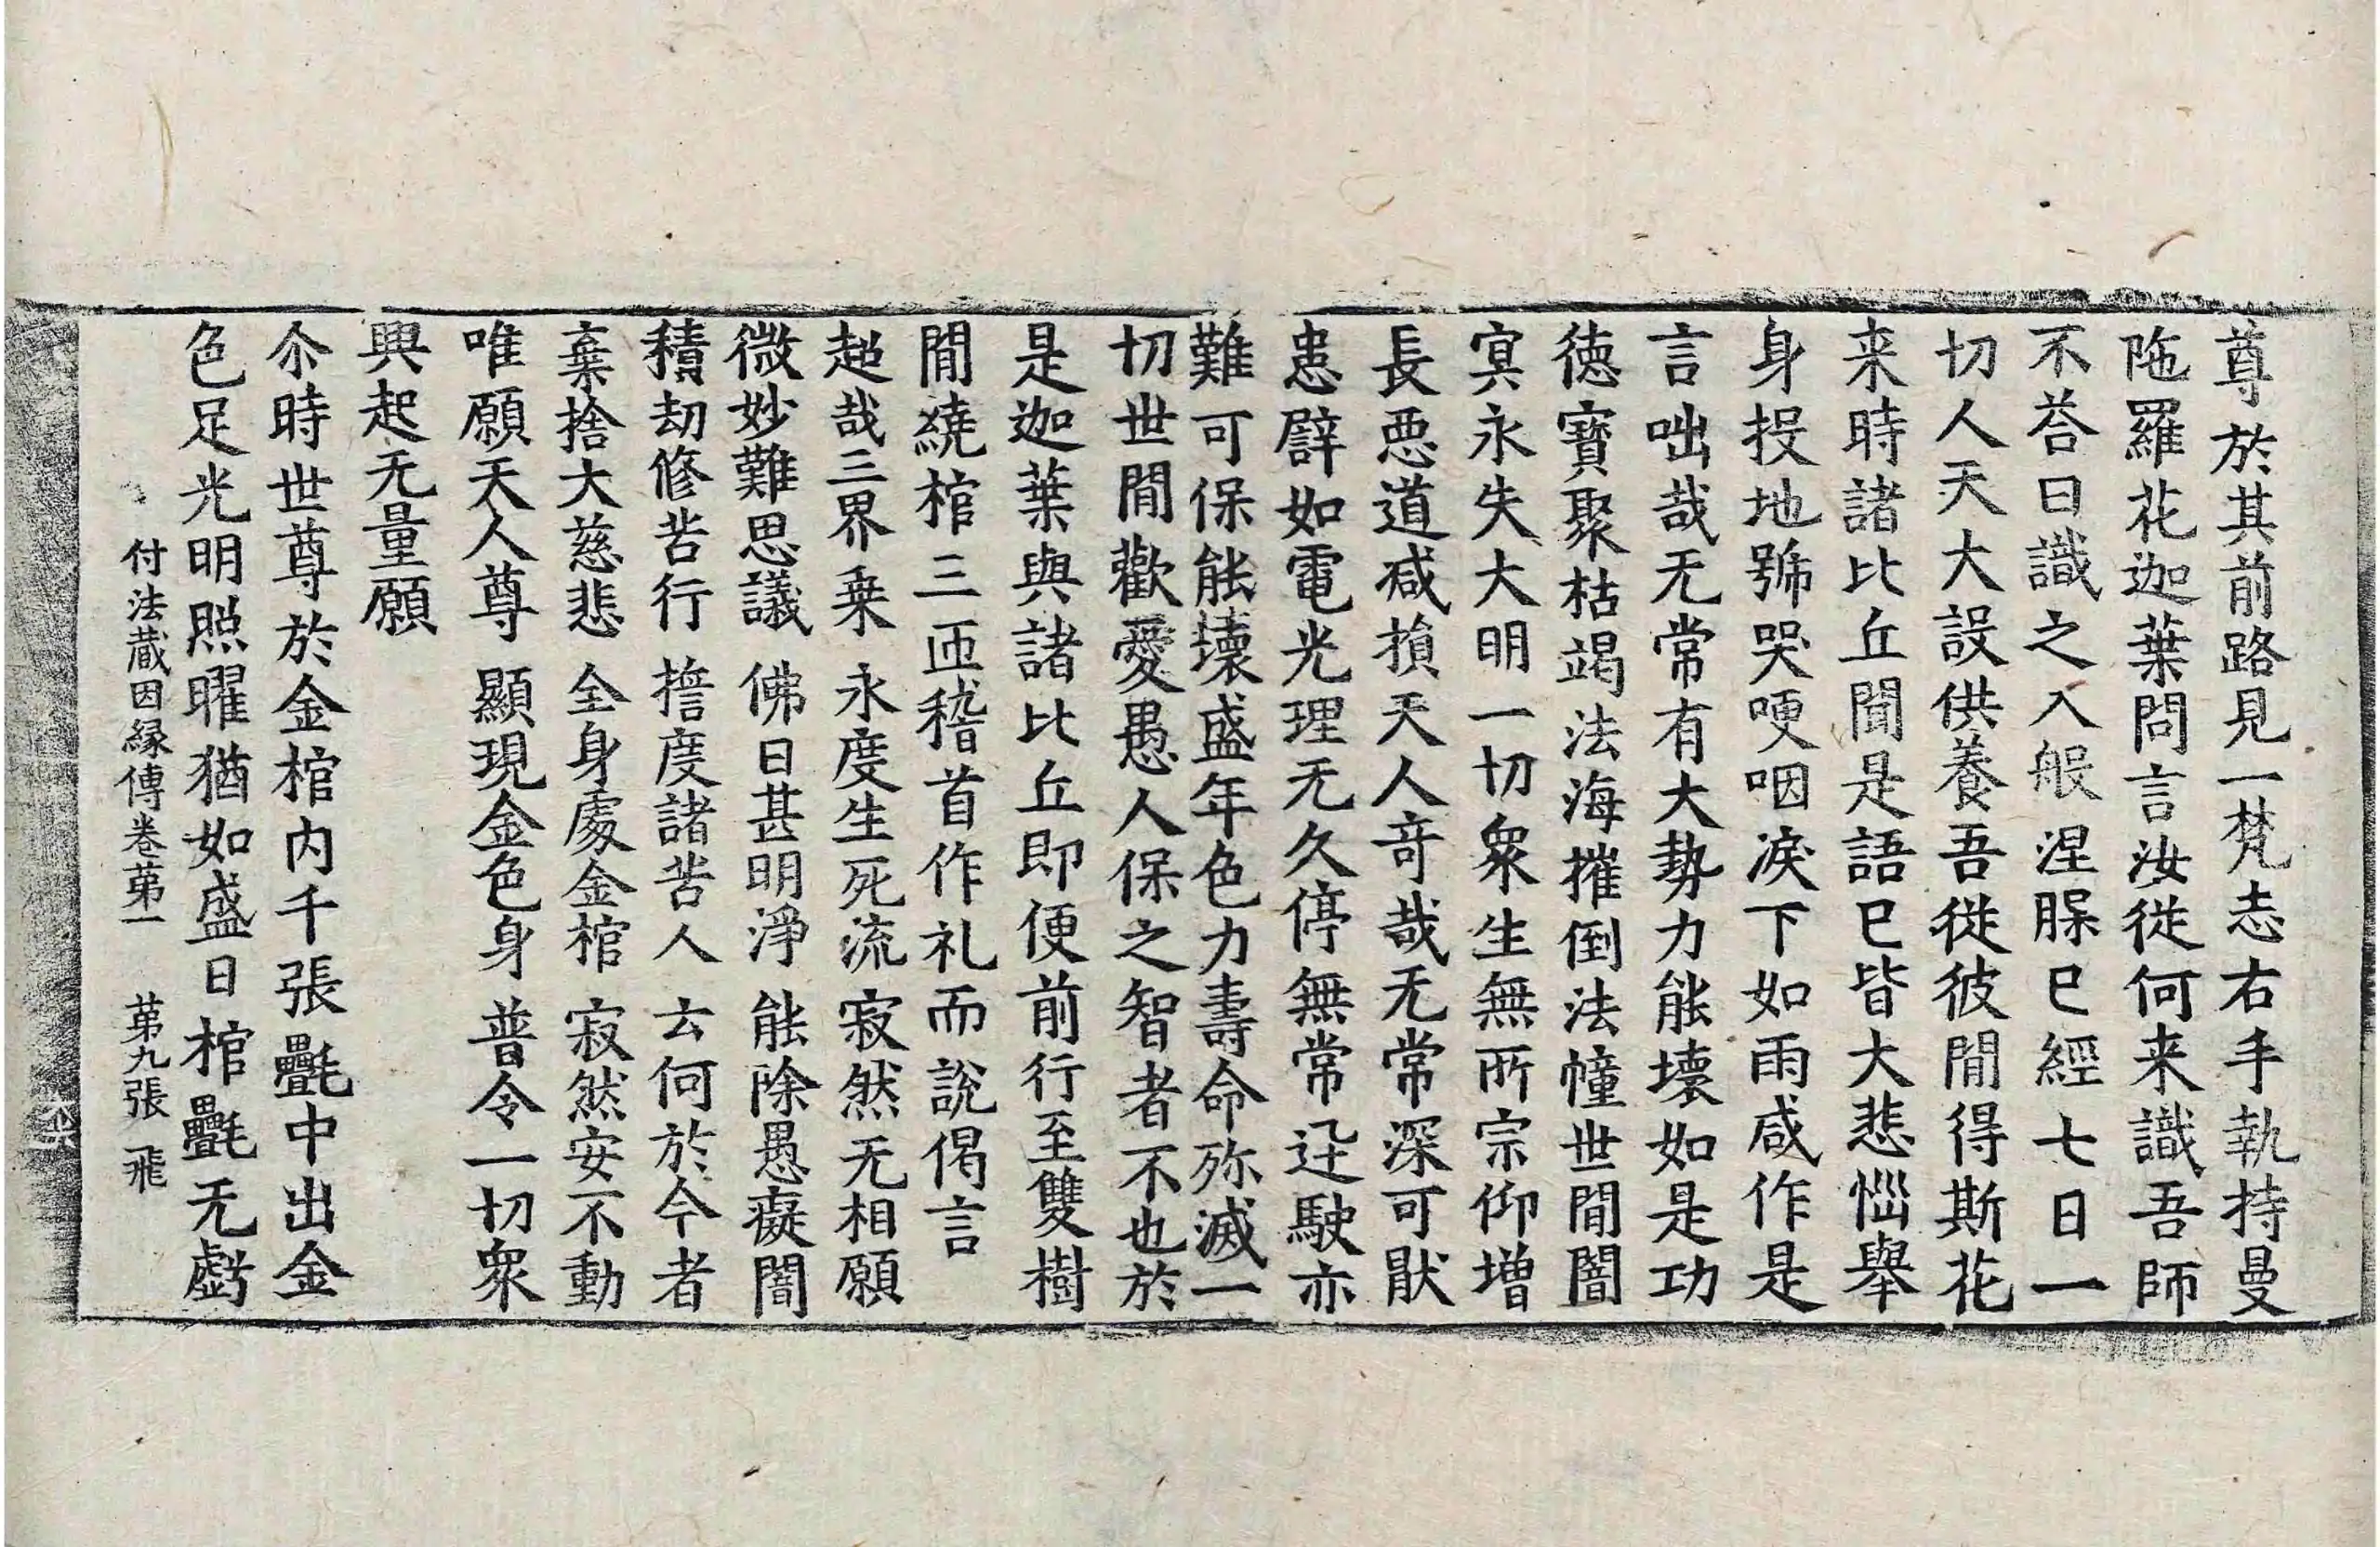 尊於其前路見一梵志右手執持曼
陁羅花迦葉問言汝從何来識吾師
不荅曰識之入般涅槃已經七日一
切人天大設供養吾從彼閒得斯花
来時諸比丘聞是語已皆大悲惱舉
身投地號哭哽咽淚下如雨咸作是
言咄哉无常有大勢力能壞如是功
德寶聚枯竭法海摧倒法幢世閒闇
冥永失大明一切衆生無所宗仰增
長惡道減損天人奇哉无常深可猒
患譬如電光理无久停無常迅駛亦
難可保能壞盛年色力壽命殄滅一
切世閒歡愛愚人保之智者不也於
是迦葉與諸比丘即便前行至雙樹
閒繞棺三匝稽首作礼而說偈言
超哉三界乗 永度生死流 寂然无相願
微妙難思議 佛日甚明淨 能除愚癡闇
積劫修苦行 擔度諸苦人 云何於今者
棄捨大慈悲 全身處金棺 寂然安不動
唯願天人尊 顯現金色身 普令一切衆
興起无量願
尒時世尊於金棺内千張氎中出金
色足光明照曜猶如盛日棺氎无虧
付法蔵因縁傳卷苐一 苐九張 飛